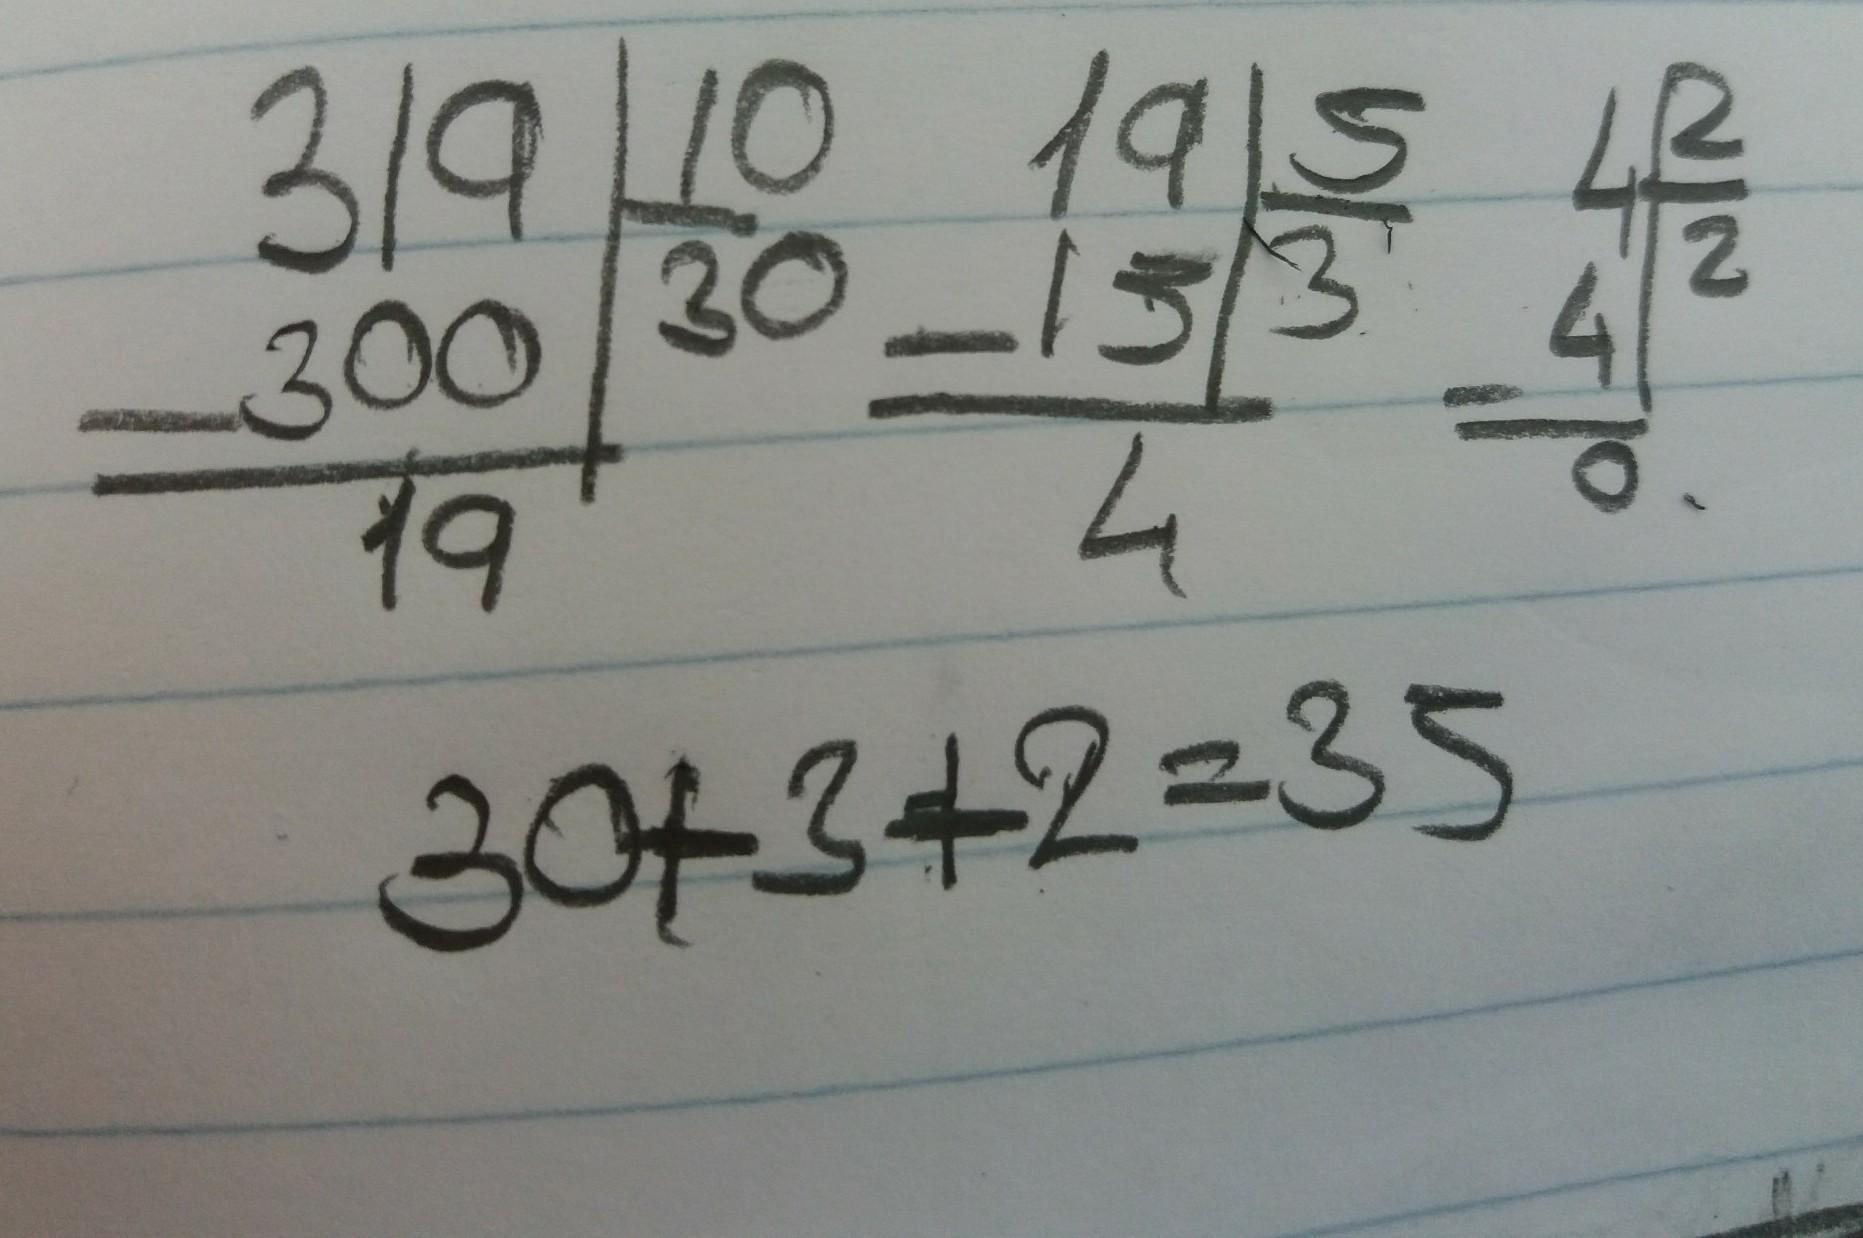 319 | 10 19 | 5 4 | 2
30 3 2
- 300 - 15 - 4
19 4 0
30+3+2=35